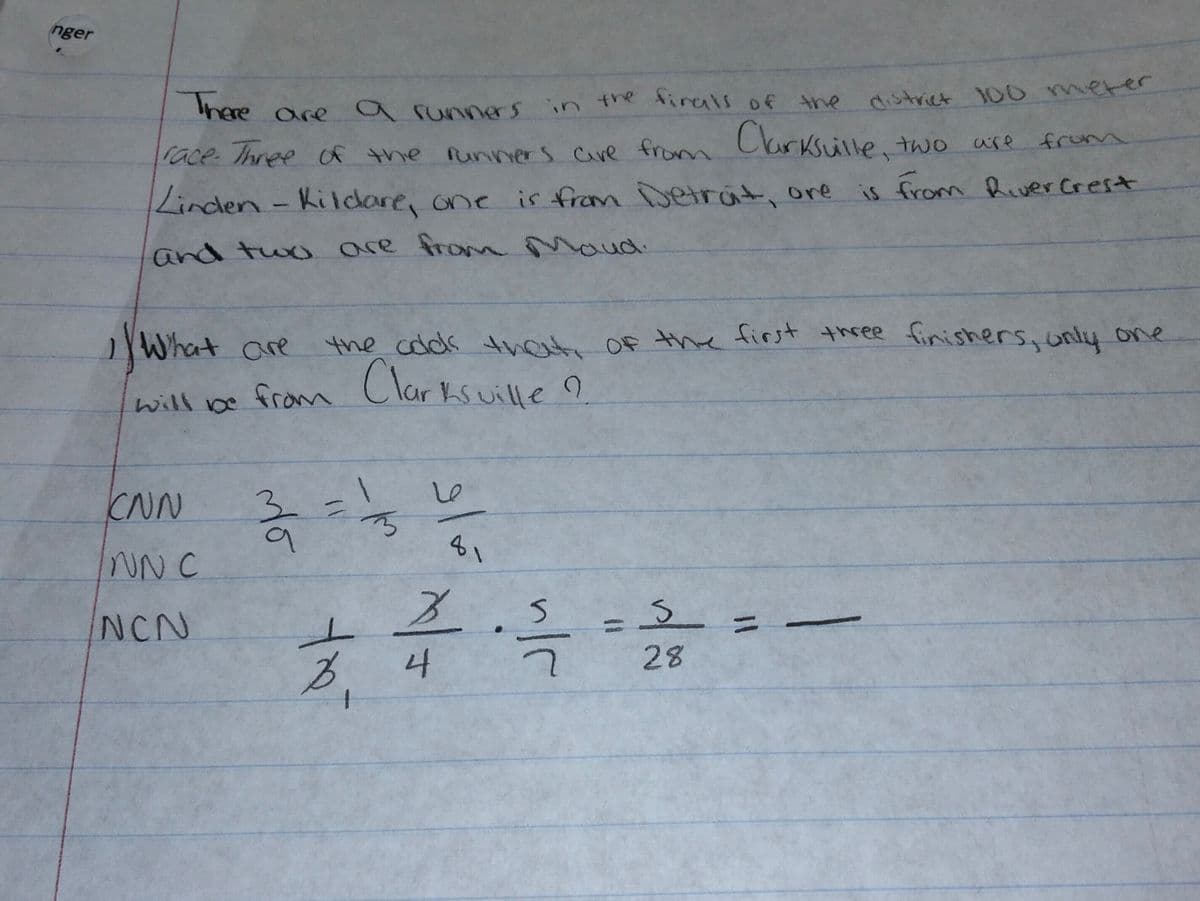 nger
There are 9 runners in the finals of the district 100 meter
race. Three of the runners are from Clarksville, two are from
Linden - Kildare, one is from Detroit, one is from Rivercrest
and two are from Maud.
1) What are the odds that, of the first three finishers, only one
will be from Clarksville?
CNN 3/9 = 1/3 6/8
NNC
NCN 1/3 3/4 . 5/7 = 5/28 = —